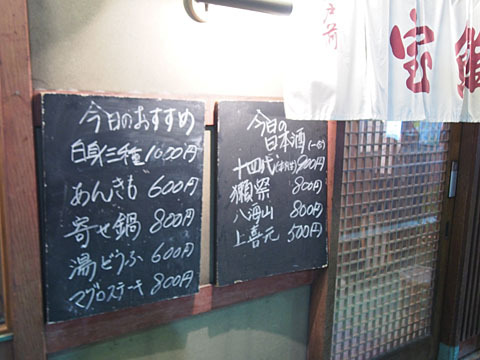 今日のおすすめ
白身三種1000円
あんきも 600円
寄せ鍋 800円
湯どうふ 600円
マグロステーキ 800円
今日の
日本酒(一合)
十四代 900円
獺祭 800円
八海山 800円
上喜元 500円
宝